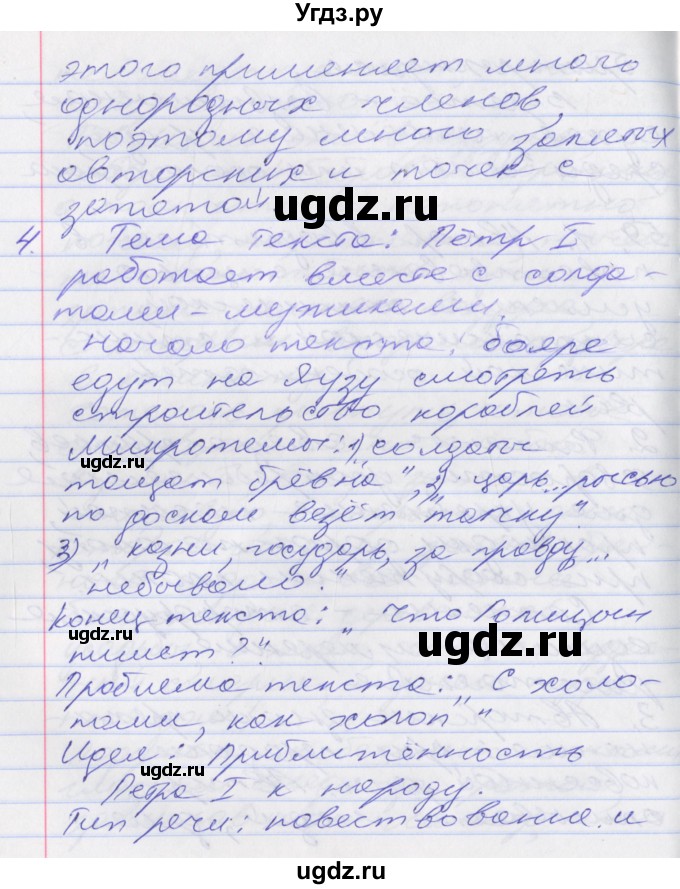 Угдз.ру
этого применяет много
однородных членов,
поэтому много запятых
авторских и точек с
запятой
ugdz.ru
4. Тема текста: Пётр I
работает вместе с солда-
тами-мужиками.
Начало текста: бояре
едут на Яузу смотреть
строительство кораблей
Микротемы: 1) "солдаты
ugdz.ru
тащат брёвна", 2) "царь... рысью
по доскам везёт тачку".
ugdz.ru
3) "казни, государь, за правду...
небывало."
Конец текста: "Что Голицын
ugdz.ru
пишет?"
Проблема текста: "С холо-
пами, как холоп"
Идея: Приближённость
ugdz.ru
Петра I к народу.
Тип речи: повествование и
ugdz.ru